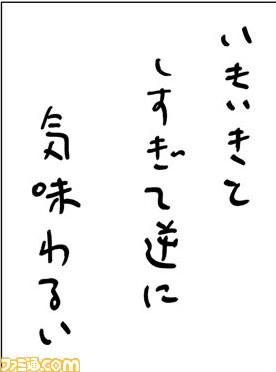 いきいきと
しすぎて逆に
気味わるい
ファミ通.com